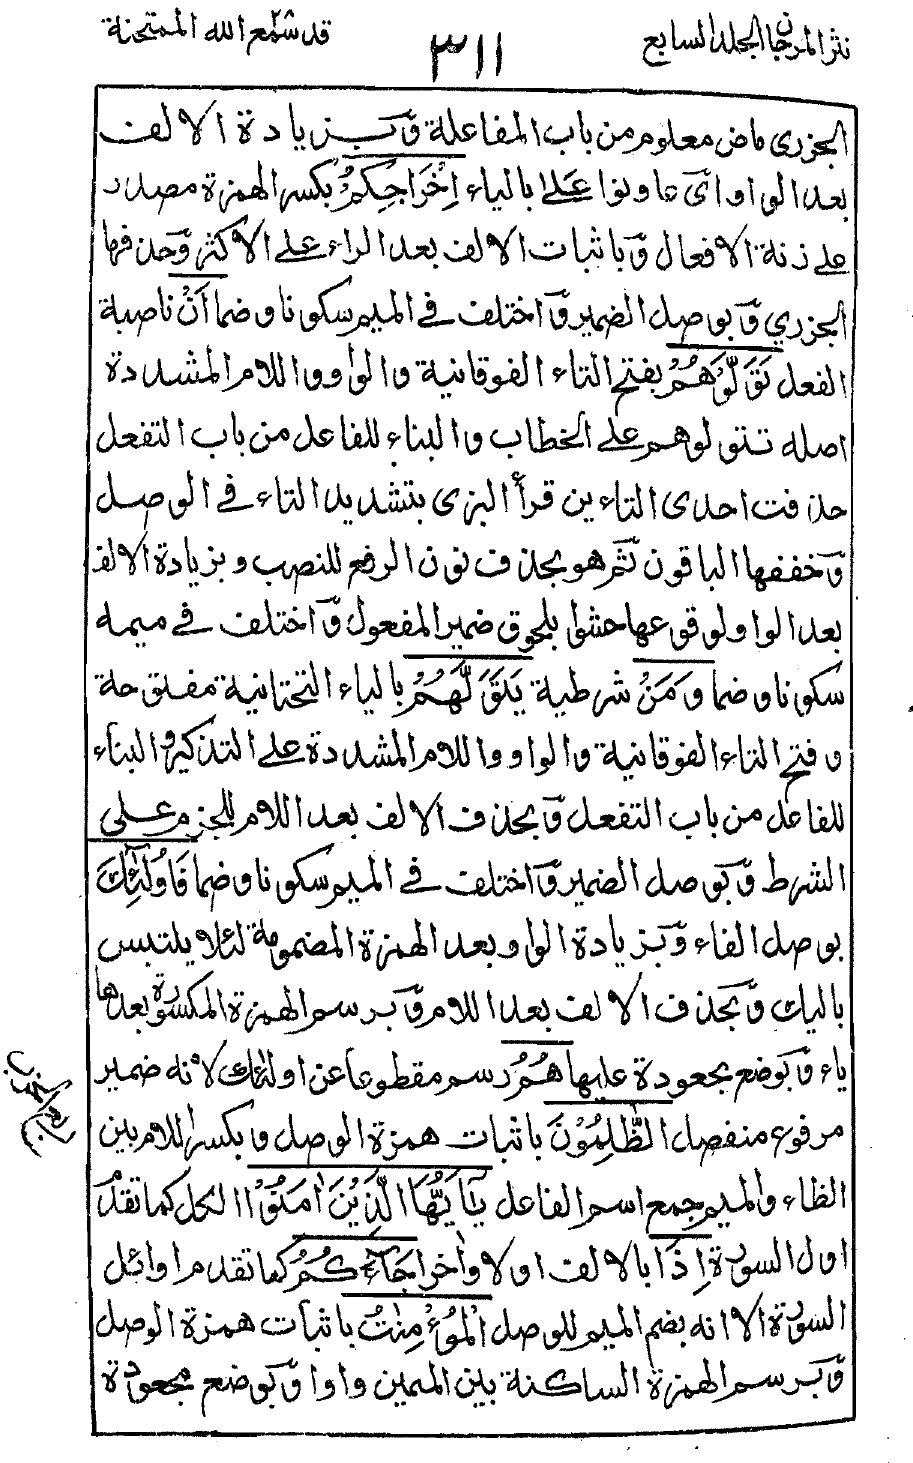 نثر المرجان المجلد السابع
٣١١
قد سمع الله ٢٨ الممتحنة
الجزري ماض معلوم من باب المفاعلة وَبزيادة الالف
بعد الواو اي عاونوا عَلٰى بالياء اِخْرَاجِكُمْ بكسر الهمزة مصدر
على زنة الافعال وَباثبات الالف بعد الراء على الاكثر وَحذفها
الجزري وَبوصل الضمير وَاختلف في الميم سكونا وضما اَنْ ناصبة
الفعل تَوَلَّوْهُمْ بفتح التاء الفوقانية والواو واللام المشددة
اصله تتولوهم على الخطاب والبناء للفاعل من باب التفعل
حذفت احدى التاءين قرأ البزى بتشديد التاء في الوصل
وَخففها الباقون ثم هو بحذف نون الرفع للنصب وبزيادة الالف
بعد الواو لوقوعها حشوا بلحوق ضمير المفعول وَاختلف في ميمه
سكونا وضما وَمَنْ شرطية يَتَوَلَّهُمْ بالياء التحتانية مفتوحة
وفتح التاء الفوقانية والواو واللام المشددة على التذكير والبناء
للفاعل من باب التفعل وَبحذف الالف بعد اللام للجزم على
الشرط وَبوصل الضمير وَاختلف في الميم سكونا وضما فَاُولٰٓئِكَ
بوصل الفاء وَبزيادة الواو بعد الهمزة المضمومة لئلا يلتبس
باليك وَبحذف الالف بعد اللام وَبرسم الهمزة المكسورة بعدها
ياء وَبوضع مجعودة عليها هُمُ رسم مقطوعا عن اولئك لانه ضمير
مرفوع منفصل الظّٰلِمُوْنَ باثبات همزة الوصل وبكسر اللام بين
الظاء والميم جمع اسم الفاعل يٰٓاَيُّهَا الَّذِيْنَ اٰمَنُوْٓا الكل كما تقدم
اول السورة اِذَا بالالف اولا واٰخرا جَآءَكُمُ كما تقدم اوائل
السورة الا انه بضم الميم للوصل الْمُؤْمِنٰتُ باثبات همزة الوصل
وَبرسم الهمزة الساكنة بين الميمين واوا وَبوضع مجعودة